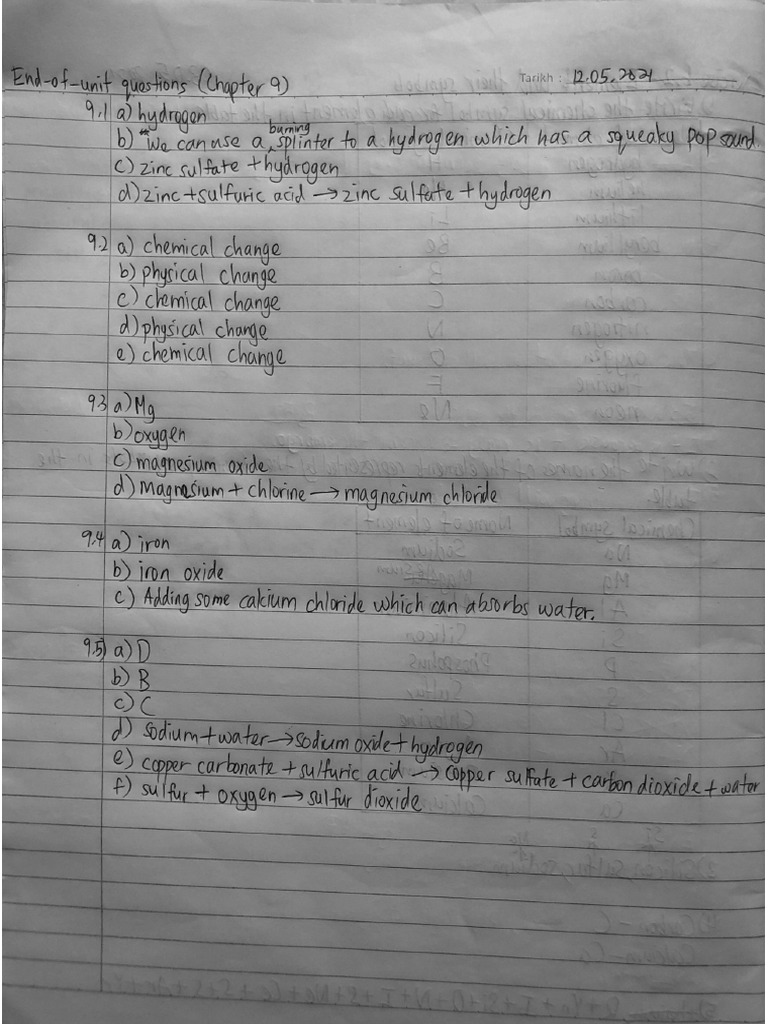 Tarikh : 12.05.2021
End-of-unit questions (Chapter 9)
9.1 a) hydrogen
b) "We can use a burning splinter to a hydrogen which has a squeaky pop sound
c) zinc sulfate + hydrogen
d) zinc + sulfuric acid → zinc sulfate + hydrogen
9.2 a) chemical change
b) physical change
c) chemical change
d) physical change
e) chemical change
9.3 a) Mg
b) oxygen
c) magnesium oxide
d) Magnesium + chlorine → magnesium chloride
9.4 a) iron
b) iron oxide
c) Adding some calcium chloride which can absorbs water.
9.5) a) D
b) B
c) C
d) sodium + water → sodium oxide + hydrogen
e) copper carbonate + sulfuric acid → copper sulfate + carbon dioxide + water
f) sulfur + oxygen → sulfur dioxide